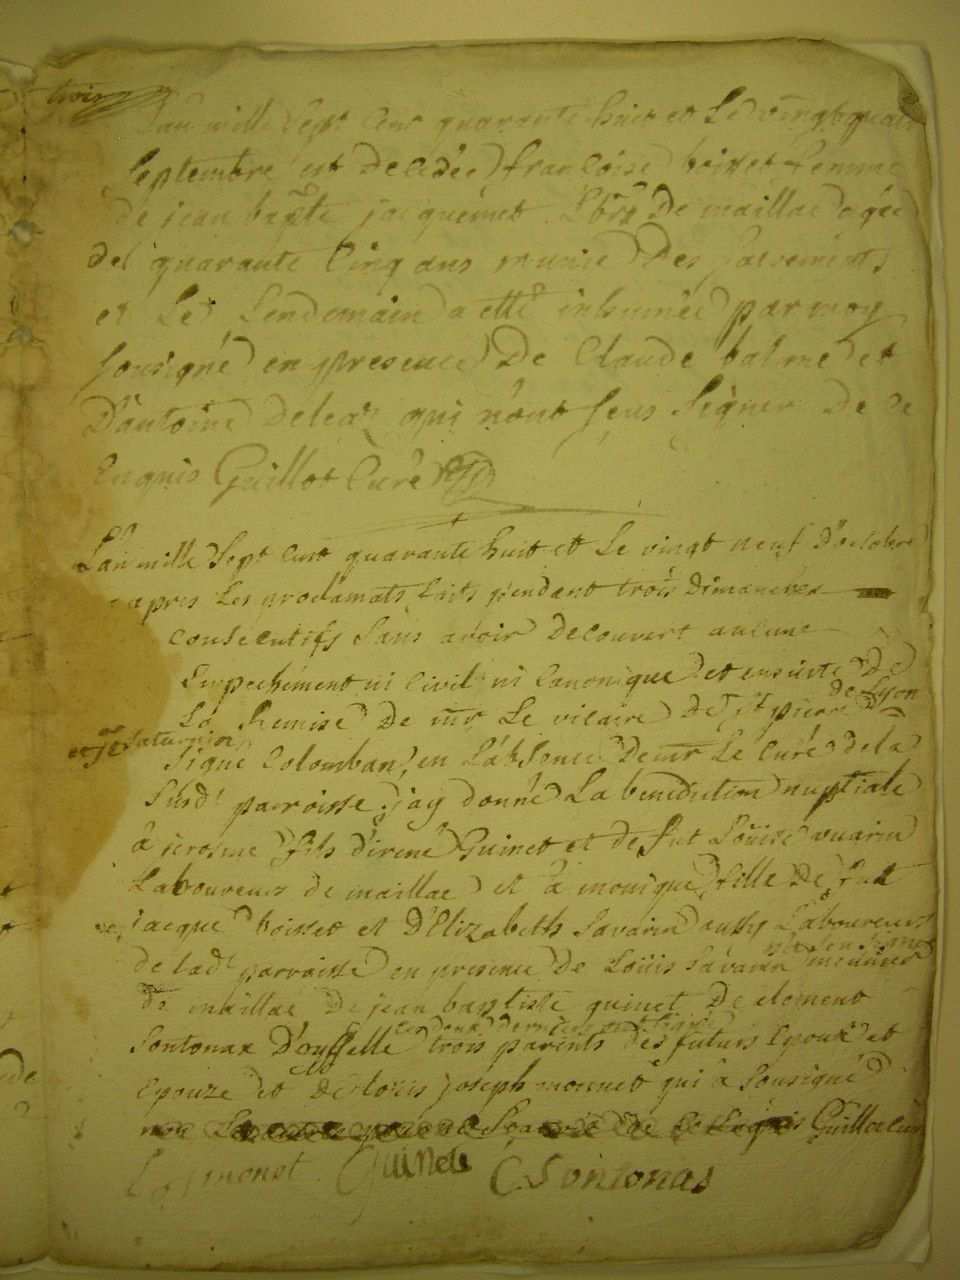 trois
Lan mille sept cent quarante huit et le vingt quatre
septembre est decedée francoise boisset femme
de jean bapte jacquemet de maillac agée
de quarante cinq ans munie des sacrements
et le lendemain a etté inhumée par moy
sousigné en presence de Claude balme et
D'antoine delear qui n'ont sçus signer de ce
Enquis Guillot Curé
L'an mille sept cent quarante huit et le vingt neuf d'octobre
apres les proclamats faits pendant trois dimanches
consecutifs sans avoir decouvert aucune
Empechement ni civil ni canonique et ensuite de
la Remise de mr le vicaire de st pierre de Lyon
et st saturnin
signé Colomban, en l'absence de mr le curé de la
susd paroisse j'ay donné la benediction nuptiale
à jerosme fils d'irené Guinet et de fut Loüise vuarin
Laboureurs de maillac et à monique fille de fut
jacque boisset et d'Elizabeth Savarin aussy Laboureurs
de lad parroisse en presence de Loüis Savarin meunier
de maillac de jean baptiste guinet de clement
ces deux derniers
Sontonax D'ouffelle trois parents des futurs Epoux et
Epouze et de Louis joseph monnet qui à sousigné
non Enquis Guillot curé
L j monet Guinete C Sontonas